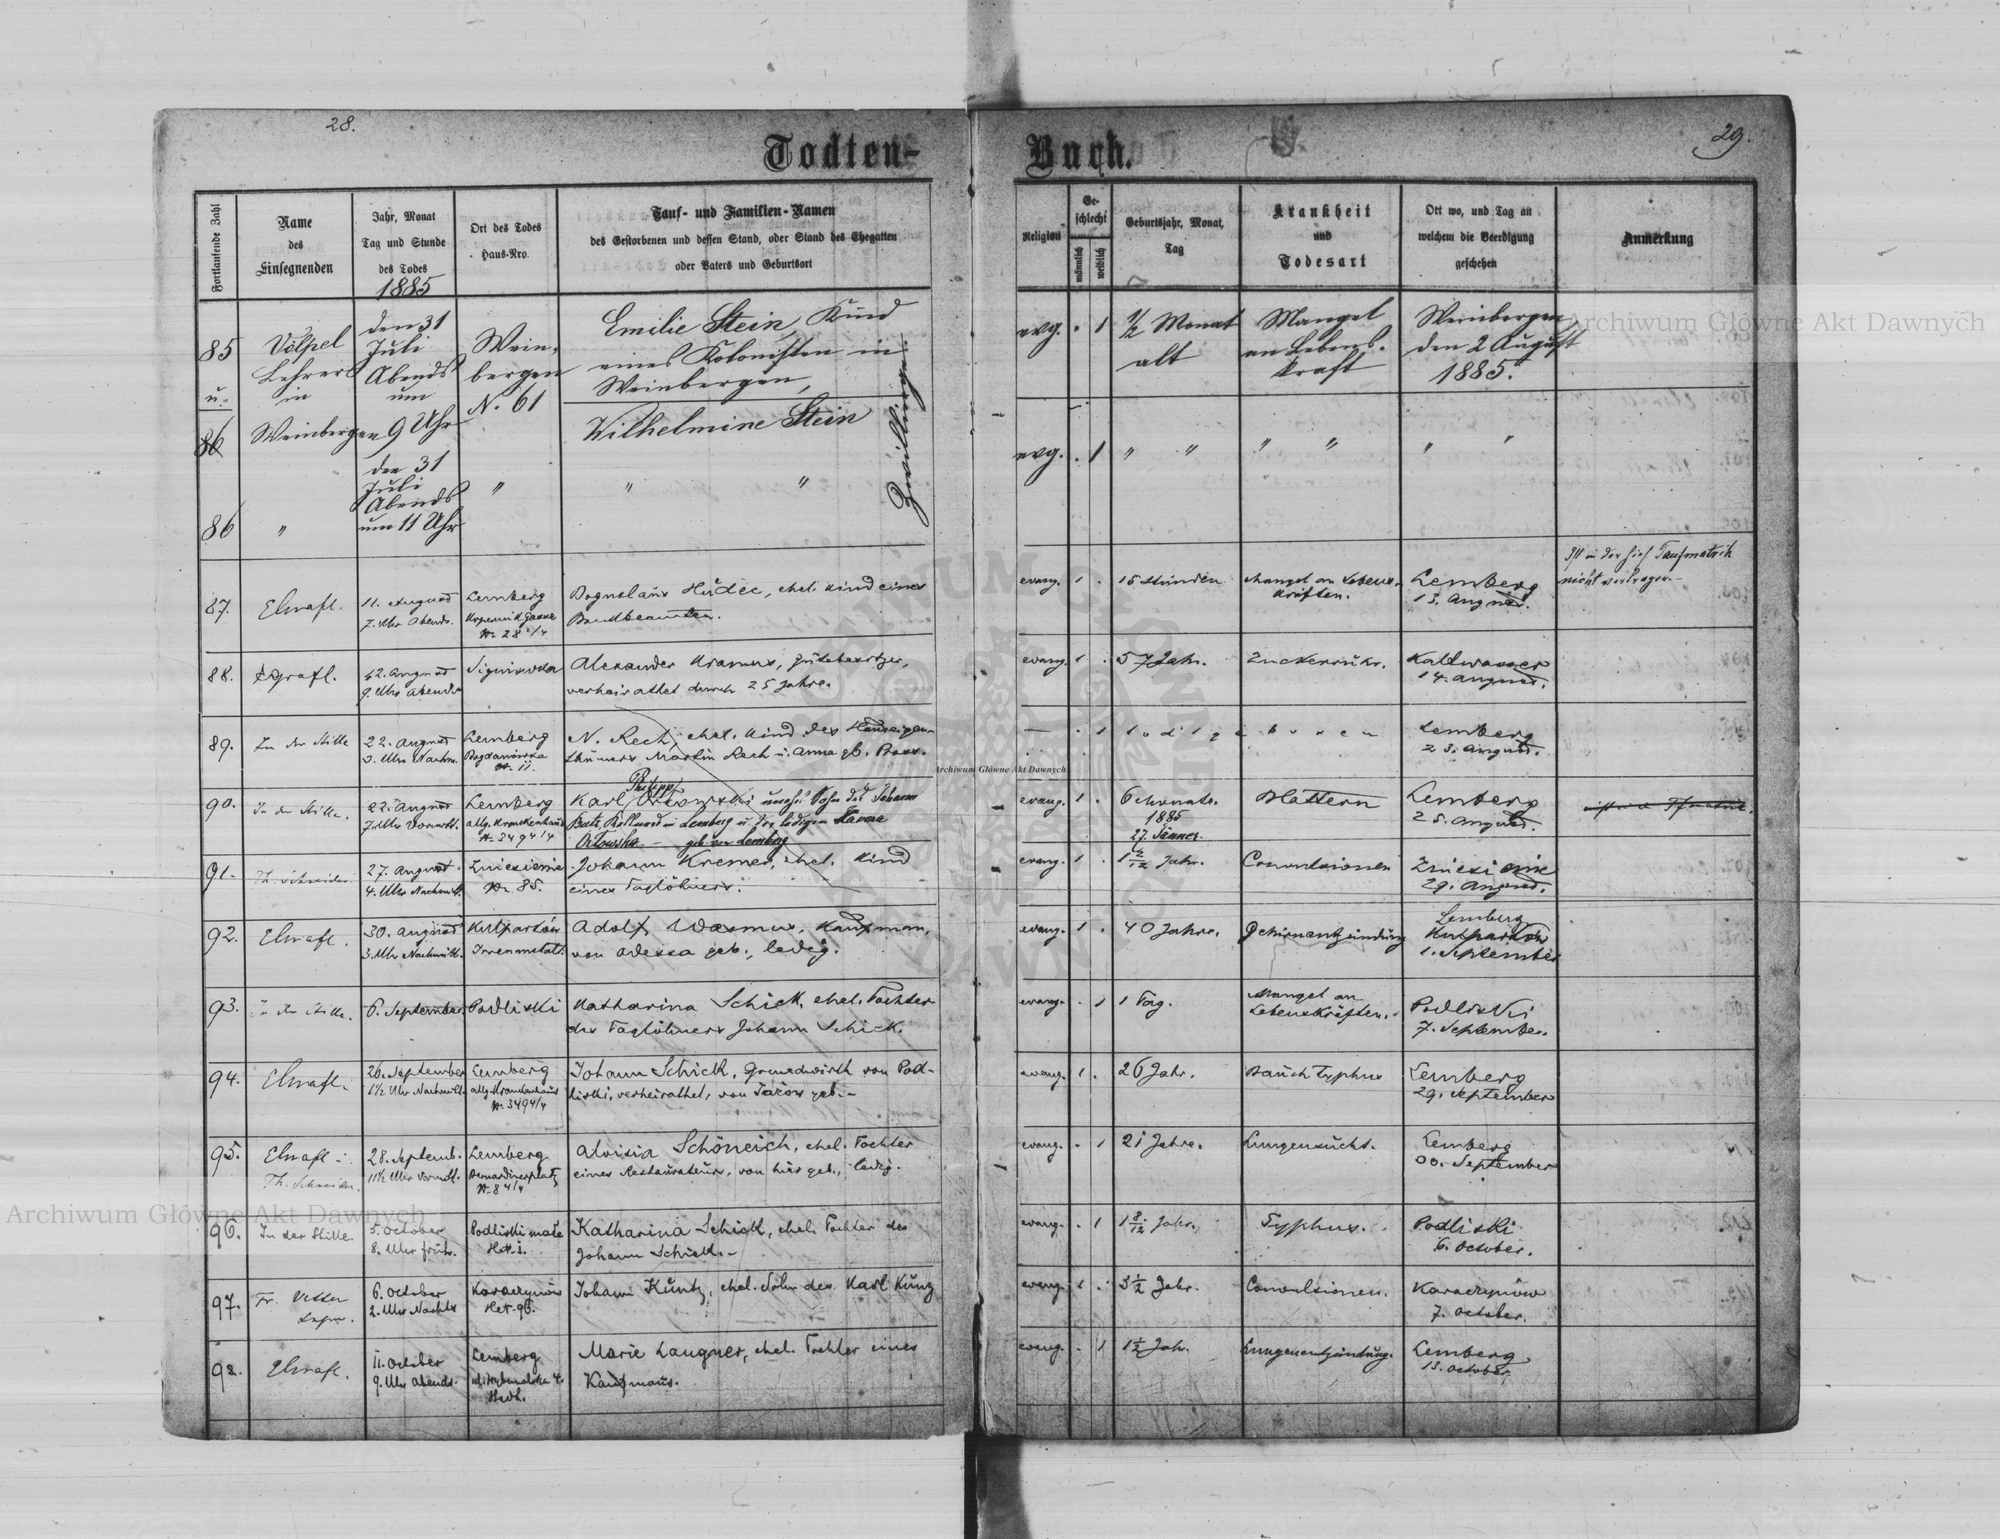 28.
Todten-
Fortlaufende Zahl
Name
des
Einsegnenden
Jahr, Monat
Tag und Stunde
des Todes
1885
Ort des Todes
Haus-Nro.
Tauf- und Familien-Namen
des Gestorbenen und dessen Stand, oder Stand des Ehegatten
oder Vaters und Geburtsort
85
u.
86
Völpel
Lehrer
in
Weinbergen
den 31
Juli
Abends
um
9 Uhr
Wein-
bergen
N. 61
Emilie Stein, Kind
eines Kolonisten in
Weinbergen,
Wilhelmine Stein
Zwillinge.
86
"
den 31
Juli
Abends
um 11 Uhr
"
" "
87.
11. August
7. Uhr Abends.
Lemberg
Nr 28 2/4
Hudec, ehel. Kind eines
Bankbeamten.
88.
12. August
9. Uhr Abends
Signiowka
Alexander Kramus, Gutsbesitzer,
verheirathet durch 25 Jahre.
89.
In der Stille
22. August
3. Uhr Nachm.
Lemberg
Bogdanowka
Nr. 11.
N. Rech, ehel. Kind des Hauseigen-
thümers Martin Rech u. Anna gb.
90.
In der Stille.
22. August
7. Uhr Vormitt.
Lemberg
allg. Krankenhaus
Nr 349 4/4
Philipp
Karl Orlowski unehel. Sohn des Johann
in Lemberg u. der ledigen
Orlowska. – geb. von Lemberg
91.
Th. Schneider
27. August
4. Uhr Nachmitt.
Zniesienie
Nr 85.
Johann Kremer, ehel. Kind
eines Taglöhners.
92.
30. August
3. Uhr Nachmitt.
Kulparkow
Irrenanstalt.
Adolf Wasmus, Kaufman,
von Odessa geb., ledig.
93.
In der Stille.
6. September
Podliski
Katharina Schick, ehel. Tochter
des Taglöhners Johann Schick.
94.
26. September
1½ Uhr Nachmitt.
Lemberg
allg. Krankenhaus
Nr. 349 4/4
Johann Schick, Grundwirth von Pod-
liski, verheirathet, von geb. –
95.
Th. Schneider.
28. Septemb.
11½ Uhr Vormitt.
Lemberg
Bernardinerplatz
Nr 8 4/4
Aloisia Schöneich, ehel. Tochter
eines Restaurateurs, von hier geb., ledig.
96.
In der Stille.
5. October
8. Uhr früh.
Podliski male
Katharina Schick, ehel. Tochter des
Johann Schick. –
97.
Fr. Vetter
6. October
2. Uhr Nachts
Karaczynów
Johann Kuntz, ehel. Sohn des Karl Kunz
98.
11. October
9. Uhr Abends.
Lemberg
Marie Laugner, ehel. Tochter eines
Kaufmans.
29.
Buch.
Religion
Ge-
schlecht
männlich
weiblich
Geburtsjahr, Monat,
Tag
Krankheit
und
Todesart
Ort wo, und Tag an
welchem die Beerdigung
geschehen
Anmerkung
evg. . 1
½ Monat
alt
Mangel
an Lebens-
kraft
Weinbergen
den 2 August
1885.
evg. . 1 " " " " " "
evang. 1 .
15 Stunden
Mangel an Lebens-
kräften.
Lemberg
13. August.
Ist in der hies. Taufmatrik
nicht eingetragen –
evang. 1 .
57 Jahr.
Zuckerruhr.
Kaltwasser
14. August.
— . 1
todtgeboren
Lemberg
23. August.
evang. 1 .
6 Monate.
1885
27. Jänner.
Blattern
Lemberg
25. August.
evang. 1 .
1 2/12 Jahr.
Convulsionen
Zniesienie
29. August.
evang. 1 .
40 Jahre.
Gehirnentzündung
Lemberg
Kulparkow
1. September
evang. . 1
1 Tag.
Mangel an
Lebenskräften.
Podliski
7. September.
evang. 1 .
26 Jahr.
Bauchtyphus
Lemberg
29. September
evang. . 1
21 Jahre.
Lungensucht.
Lemberg
30. September
evang. . 1
1 8/12 Jahr.
Typhus.
Podliski
6. October.
evang. 1 .
3½ Jahr.
Convulsionen.
Karaczynów
7. October.
evang. . 1
1½ Jahr.
Lungenentzündung.
Lemberg
13. October
Archiwum Główne Akt Dawnych
Archiwum Główne Akt Dawnych
Archiwum Główne Akt Dawnych
ARCHIWUM GŁÓWNE AKT DAWNYCH